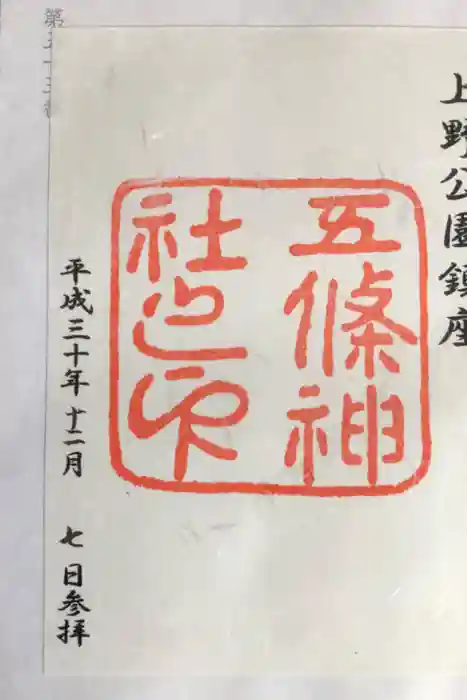 上野公園鎮座
五條神
社之印
平成三十年十二月 七日参拝
第五十三